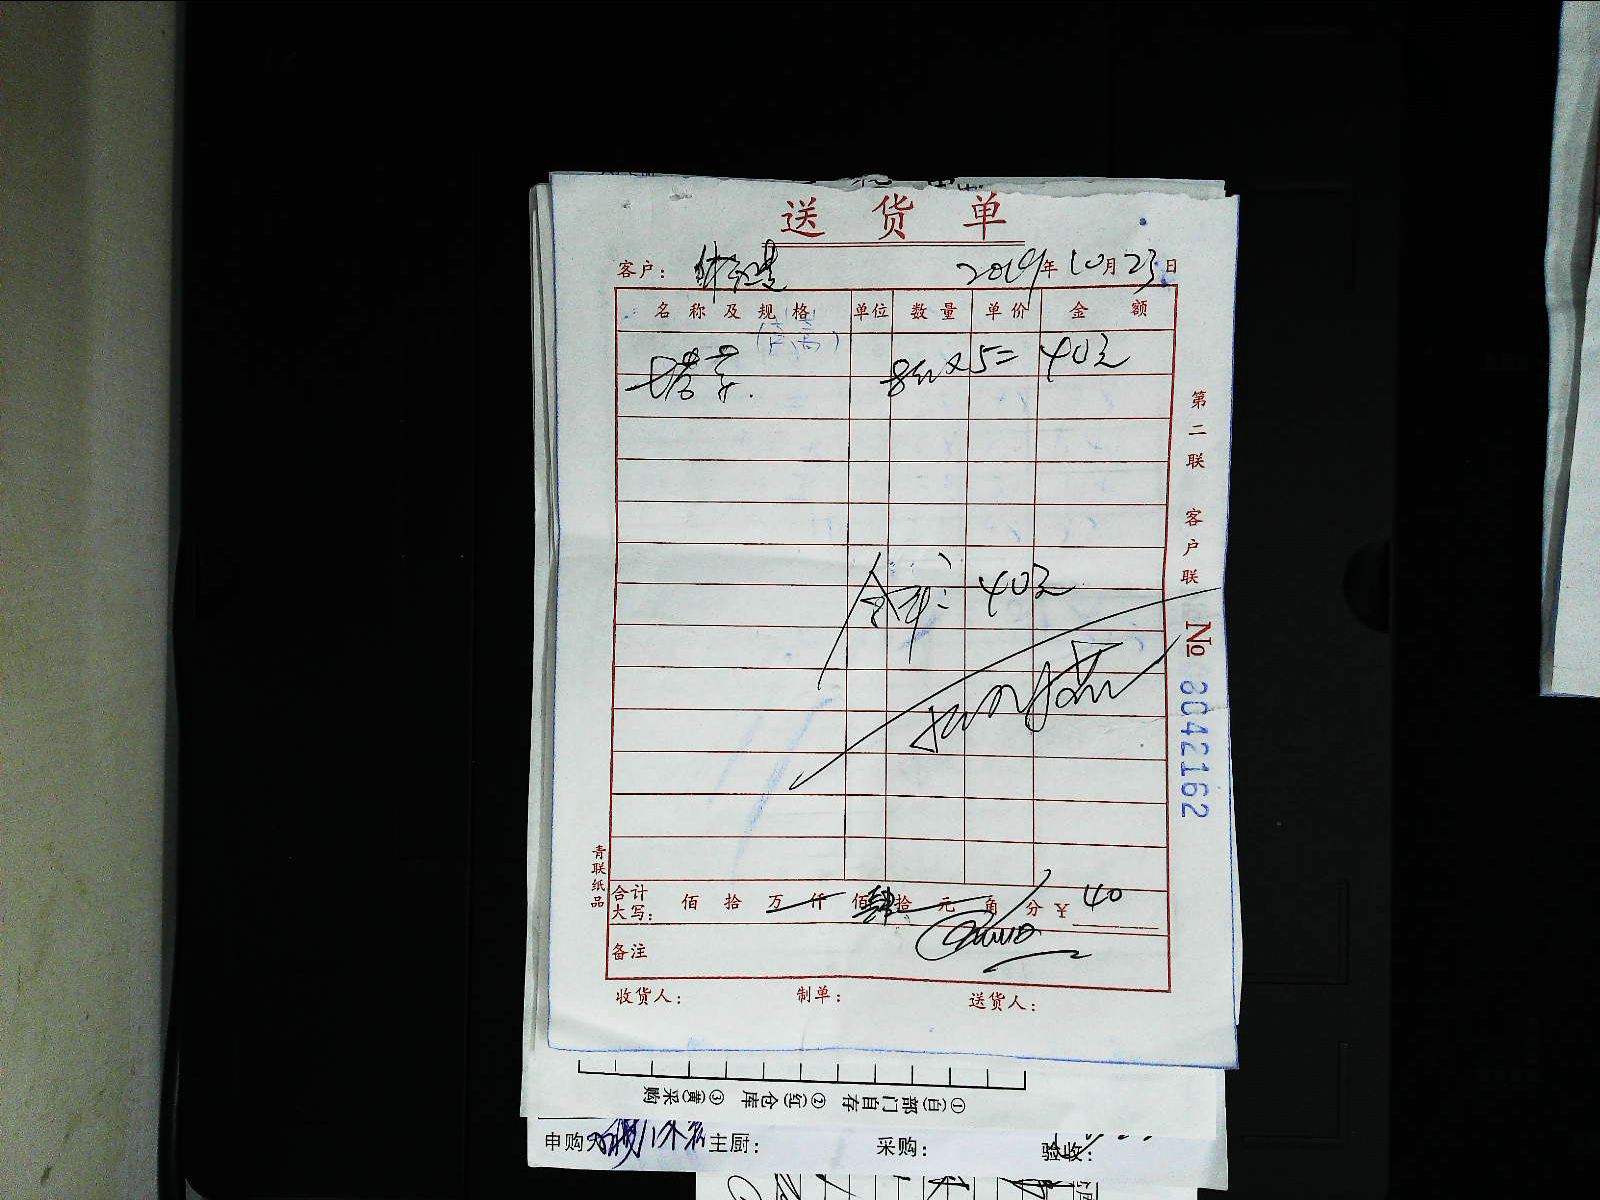 送货单
客户： 2019年10月23日
名称及规格 单位 数量 单价 金额
塔菜. 8包×5= 40元
合计: 40元
第二联 客户联
№ 8042162
青联纸品
合计大写： 佰 拾 万 仟 佰 肆拾 元 角 分 ¥ 40
备注
收货人： 制单： 送货人：
①(白)部门自存 ②(红)仓库 ③(黄)采购
申购人 主厨： 采购： 验收：